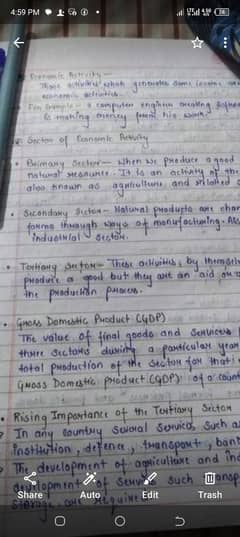 4:59 PM
Economic Activity -
Those activities which generates some income are
economic activities.
For Example - a computer engineer creating software
is making money from his work.
Sector of Economic Activity
Primary Sector - When we produce a good
natural resource. It is an activity of the
also known as agriculture, and related s
Secondary Sector - Natural products are chan
forms through ways of manufacturing. Als
industrial sector.
Tertiary Sector - These activities, by themsel
produce a good but they are an aid or a
the production process.
Gross Domestic Product (GDP)
The value of final goods and services
three sectors during a particular year
total production of the sector for that
Gross Domestic Product (GDP) of a count
Rising Importance of the Tertiary Sector
In any country several services, such as
institution, defence, transport, bank
The development of agriculture and ind
development of services such transp
storage are require
Share Auto Edit Trash